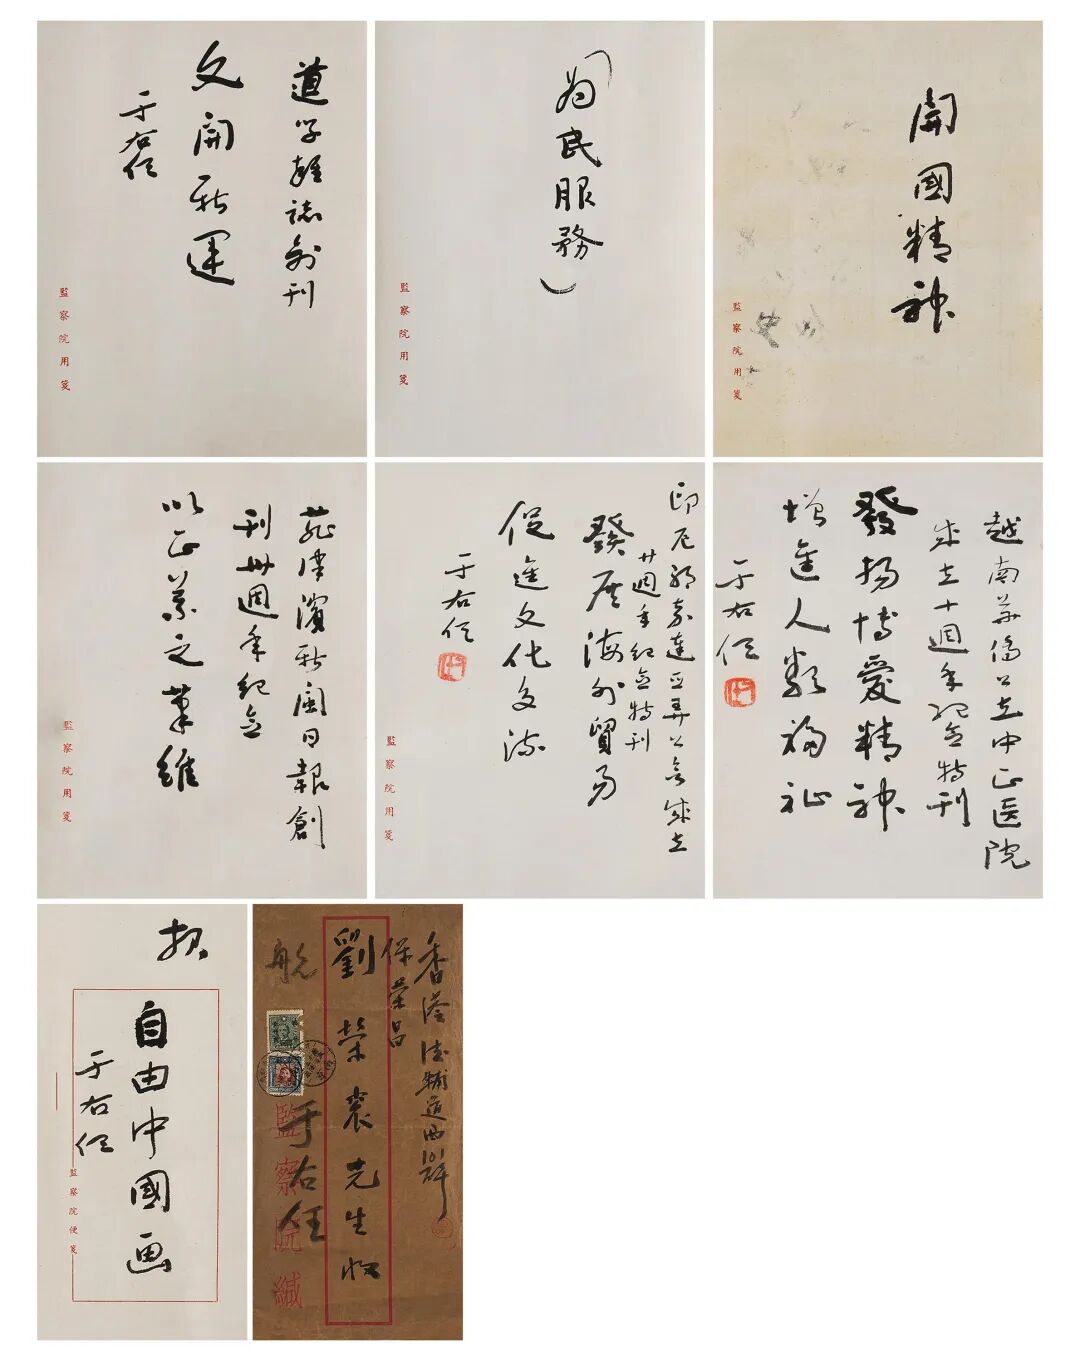 道學雜誌創刊
文開新運
于右任
監察院用箋
為民服務
監察院用箋
開國精神
監察院用箋
菲律濱新聞日報創
刊卅週年紀念
以正義之筆維
監察院用箋
印尼椰嘉達亞弄公會成立
廿週年紀念特刊
發展海外貿易
促進文化交流
于右任
監察院用箋
越南華僑公立中正医院
成立十週年紀念特刊
發揚博愛精神
增進人類福祉
于右任
自由中國画
于右任
監察院便箋
香港德輔道西101號
保榮昌
劉榮裘先生收
航
于右任
監察院緘